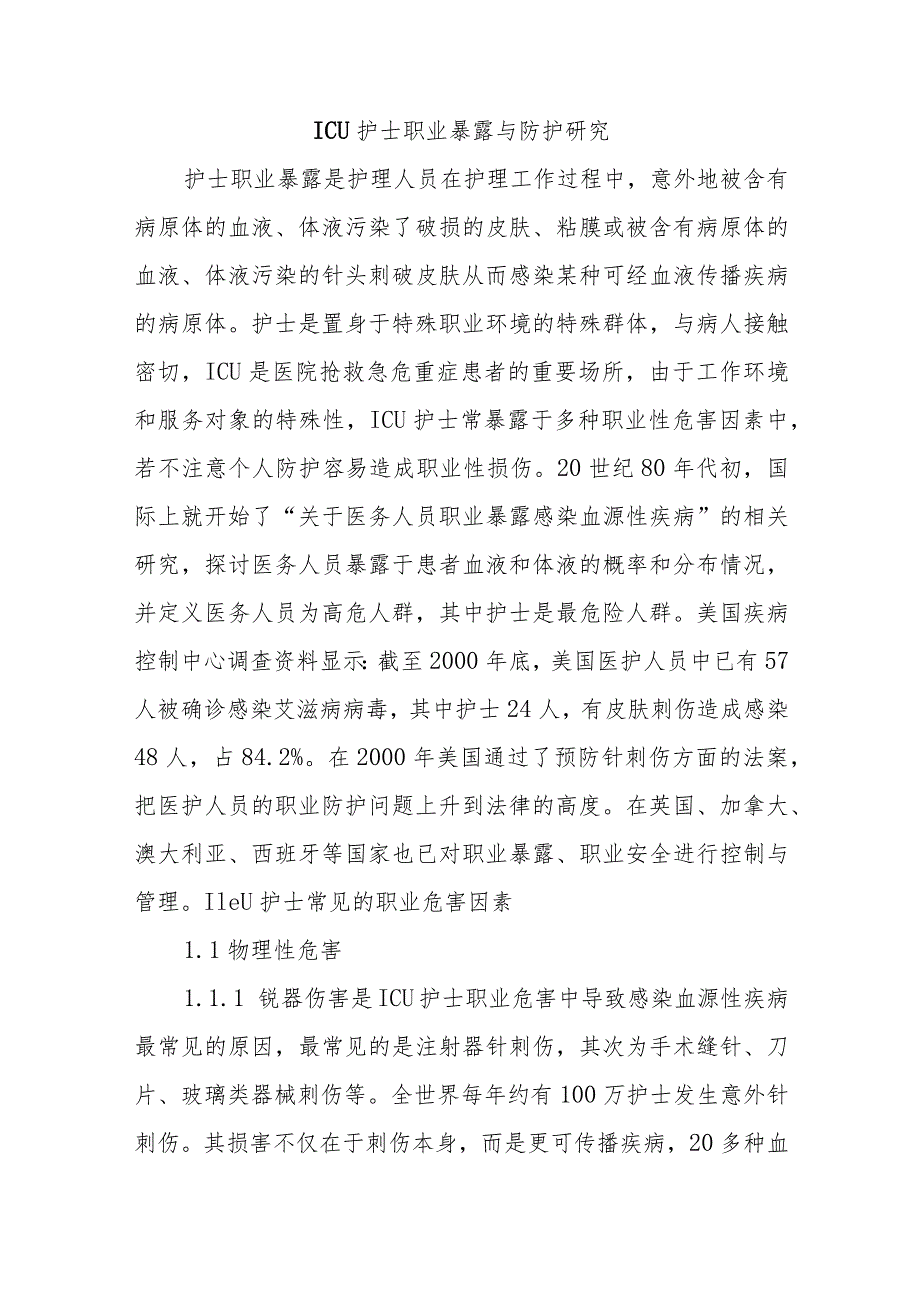 ICU护士职业暴露与防护研究
护士职业暴露是护理人员在护理工作过程中，意外地被含有
病原体的血液、体液污染了破损的皮肤、粘膜或被含有病原体的
血液、体液污染的针头刺破皮肤从而感染某种可经血液传播疾病
的病原体。护士是置身于特殊职业环境的特殊群体，与病人接触
密切，ICU是医院抢救急危重症患者的重要场所，由于工作环境
和服务对象的特殊性，ICU护士常暴露于多种职业性危害因素中，
若不注意个人防护容易造成职业性损伤。20世纪80年代初，国
际上就开始了“关于医务人员职业暴露感染血源性疾病”的相关
研究，探讨医务人员暴露于患者血液和体液的概率和分布情况，
并定义医务人员为高危人群，其中护士是最危险人群。美国疾病
控制中心调查资料显示：截至2000年底，美国医护人员中已有57
人被确诊感染艾滋病病毒，其中护士24人，有皮肤刺伤造成感染
48人，占84.2%。在2000年美国通过了预防针刺伤方面的法案，
把医护人员的职业防护问题上升到法律的高度。在英国、加拿大、
澳大利亚、西班牙等国家也已对职业暴露、职业安全进行控制与
管理。IleU护士常见的职业危害因素
1.1物理性危害
1.1.1 锐器伤害是ICU护士职业危害中导致感染血源性疾病
最常见的原因，最常见的是注射器针刺伤，其次为手术缝针、刀
片、玻璃类器械刺伤等。全世界每年约有100万护士发生意外针
刺伤。其损害不仅在于刺伤本身，而是更可传播疾病，20多种血